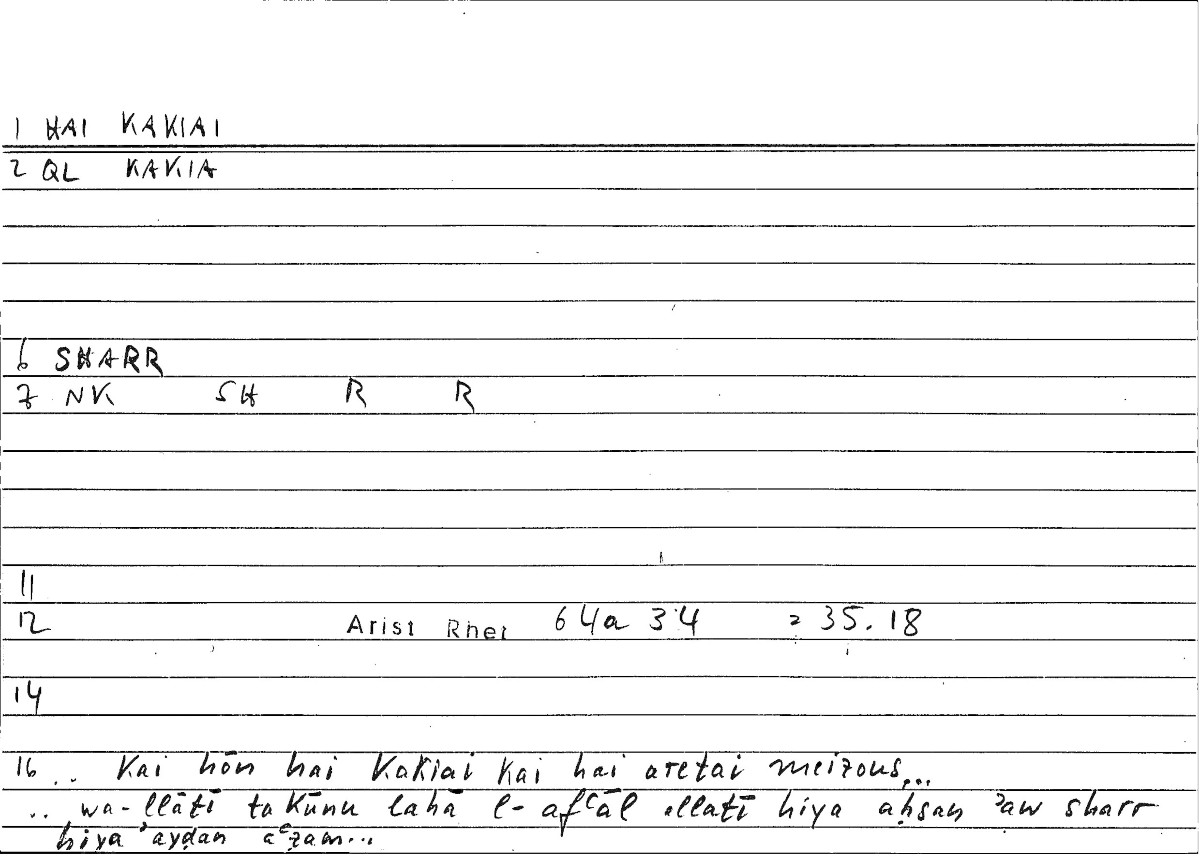 1 HAI KAKIAI
2 QL KAKIA
6 SHARR
7 NK SH R R
11
12 Arist Rhet 64a 34 = 35.18
14
16 .. Kai hōn hai Kakiai kai hai aretai meizous...
.. wa-llātī takūnu lahā l-afʿāl allatī hiya aḥsan ʾaw sharr
hiya ʾayḍan aʿẓam...